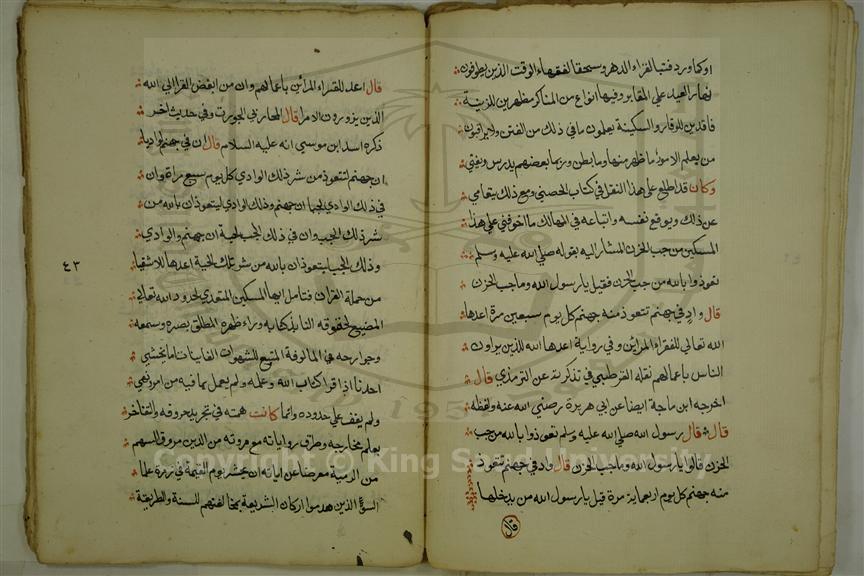 اوكما ورد فتبا لقراء الدهر وسحقا لفقهاء الوقت الذين يطوفون
نهار العيد على المقابر وفيها انواع من المناكر مظهرين للزينة
فاقدين للوقار والسكينة يعلمون ما في ذلك من الفتن ولا يراقبون
من يعلم الامور ما ظهر منها وما بطن وربما بعضهم يدرس ويفتي
وكان قد اطلع على هذا النقل في كتاب الحصني ومع ذلك يتعامى
عن ذلك ويوقع نفسه واتباعه في المهالك ما اخوفني على هذا
المسكين من جب الحزن المشار اليه بقوله صلى الله عليه وسلم
تعوذوا بالله من جب الحزن فقيل يا رسول الله وما جب الحزن
قال واد في جهنم تتعوذ منه جهنم كل يوم سبعين مرة اعدها
الله تعالى للقراء المرائين وفي رواية اعدها الله للذين يراون
الناس باعمالهم نقله القرطبي في تذكرته عن الترمذي قال
اخرجه ابن ماجة ايضا عن ابي هريرة رضي الله عنه ولفظه
قال قال رسول الله صلى الله عليه وسلم تعوذوا بالله من جب
الحزن قالوا يا رسول الله وما جب الحزن قال واد في جهنم تتعوذ
منه جهنم كل يوم اربعماية مرة قيل يا رسول الله من يدخلها
قال
قال اعد للقراء المرائين باعمالهم وان من ابغض القرا الى الله
الذين يزورون الامرا قال المحاربي الجورة وفي حديث اخر
ذكره اسد ابن موسى انه عليه السلام قال ان في جهنم لواديا
ان جهنم لتتعوذ من شر ذلك الوادي كل يوم سبع مرات وان
في ذلك الوادي لجبا ان جهنم وذلك الوادي ليتعوذان بالله من
شر ذلك الجب وان في ذلك الجب لحية ان جهنم والوادي
وذلك الجب ليتعوذان بالله من شر تلك الحية اعدها للاشقيا
من حملة القران فتامل ايها المسكين المتعدي لحدود الله تعالى
المضيع لحقوقه النابذ كتابه وراء ظهره المطلق بصره وسمعه
وجوارحه في المالوفة المتبع للشهوات الفانيات اما يخشى
احدنا اذا قرا كتاب الله وعمله ولم يعمل بما فيه من امر ونهي
ولم يقف على حدوده وانما كانت همته في تجريد حروفه والتفاخر
بعلم مخارجه وطرق رواياته مع مروقه من الدين مروق السهم
من الرمية معرضا عن اياته ان يحشر يوم القيمة في زمرة علما
السوء الذين هدموا اركان الشريعة بمخالفتهم للسنة والطريقة
٤٣
Copyright © King Saud University
195